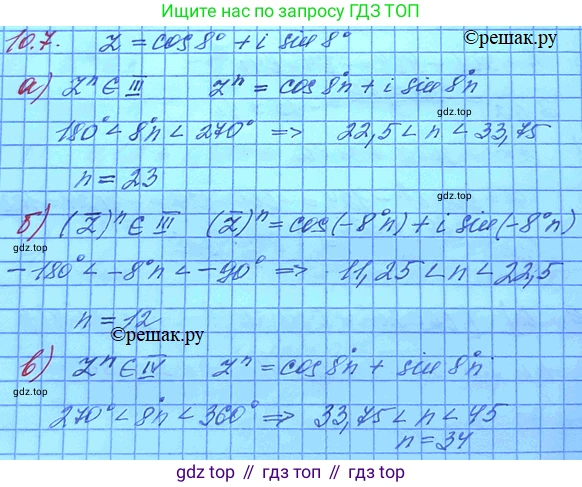 Ищите нас по запросу ГДЗ ТОП
10.7. z = cos 8° + i sin 8°
©решак.ру
а) zⁿ ∈ III zⁿ = cos 8°n + i sin 8°n
gdz.top
gdz.top
180° < 8°n < 270° ⇒ 22,5 < n < 33,75
gdz.top
gdz.top
n = 23
б) (z̅)ⁿ ∈ III (z̅)ⁿ = cos(-8°n) + i sin(-8°n)
gdz.top
gdz.top
-180° < -8°n < -90° ⇒ 11,25 < n < 22,5
gdz.top
n = 12
©решак.ру
в) zⁿ ∈ IV zⁿ = cos 8°n + sin 8°n
gdz.top
270° < 8°n < 360° ⇒ 33,75 < n < 45
gdz.top
n = 34
gdz.top // гдз.top // gdz.top